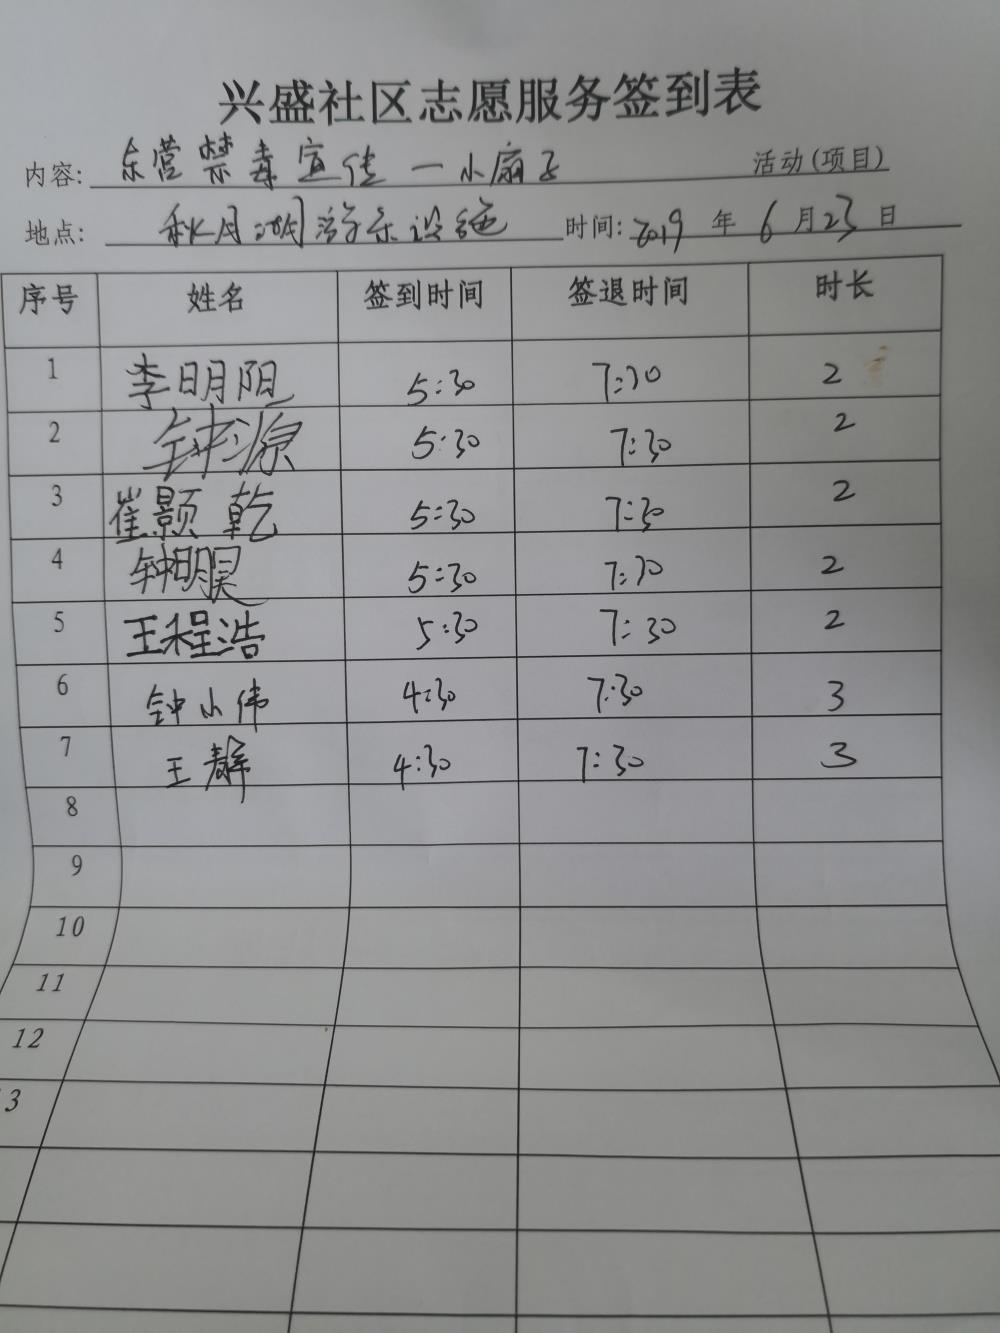 兴盛社区志愿服务签到表
内容: 东营禁毒宣传一小扇子 活动(项目)
地点: 秋月湖游乐设施 时间: 2019 年 6 月 23 日
序号 姓名 签到时间 签退时间 时长
1 李明阳 5:30 7:30 2
2 钟源 5:30 7:30 2
3 崔颢乾 5:30 7:30 2
4 钟明昊 5:30 7:30 2
5 王程浩 5:30 7:30 2
6 钟小伟 4:30 7:30 3
7 王 4:30 7:30 3
8
9
10
11
12
3